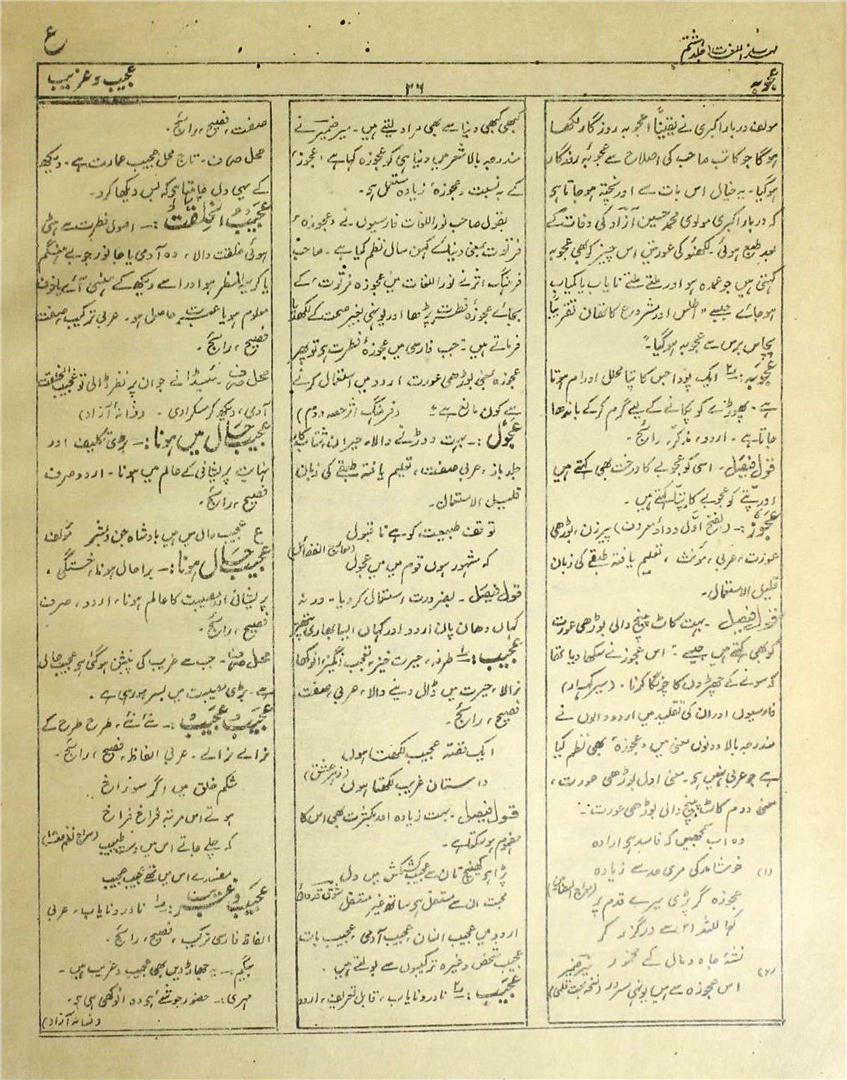 مہذب اللغات جلد ہشتم
ع
عجوبہ
۳۶
عجیب و غریب
مولف دربار اکبری نے یقیناً اعجوبہ روزگار لکھا
ہوگا جو کاتب صاحب کی اصلاح سے عجوبہ روزگار
ہوگیا۔ یہ خیال اس بات سے اور پختہ ہو جاتا ہے
کہ دربار اکبری مولوی محمد حسین آزاد کی وفات کے
بعد طبع ہوئی۔ لکھنؤ کی عورتیں اس چیز کو بھی عجوبہ
کہتی ہیں جو عمدہ ہو اور ملتے ملتے نایاب یا کمیاب
ہو جائے جیسے " اطلس اور مشروع کا تھان تقریباً
پچاس برس سے عجوبہ ہوگیا"
عجوبہ:۔ ایک پودا جس کا پتا دلدار ہوتا
ہے۔ پھوڑے کو پکانے کے لیے گرم کرکے باندھا
جاتا ہے۔ اردو، مذکر، رائج۔
قول فیصل۔ اسی کو عجوبے کا درخت بھی کہتے ہیں
اور پتے کو عجوبے کا پتا کہتے ہیں۔
عجوز:۔ (بفتح اول و واو معروف) پیرزن، بوڑھی
عورت، عربی، مؤنث، تعلیم یافتہ طبقے کی زبان
قلیل الاستعمال۔
قول فیصل۔ بہت کاٹ پیچ والی بوڑھی عورت
کو بھی کہتے ہیں جیسے " اس عجوز نے سکھا دیا تھا
کہ سونے کے چھپڑوں کا چونگا کرنا۔ (سیر کہسار)
فارسیوں اور ان کی تقلید میں اردو والوں نے
مندرجہ بالا دونوں معنی میں 'عجوزہ' بھی نظم کیا
ہے جو عربی نہیں ہے۔ معنی اول بوڑھی عورت،
معنی دوم کاٹ پیچ والی بوڑھی عورت:۔
وہ اب سمجھیں کہ فاسد ہے ارادہ
(۱) خوشامد کی مری حد سے زیادہ
عجوزہ گر پڑی میرے قدم پر
کہا للہ اس سے درگزر کر
(۲) نشۂ جاہ و مال کے مخمور
اس عجوزہ سے ہیں یونہی مسرور
کبھی کبھی دنیا سے بھی مراد لیتے ہیں۔ میر ضمیر نے
مندرجہ بالا شعر میں دنیا ہی کو عجوزہ کہا ہے، عجوز
کے بہ نسبت 'عجوزہ' زیادہ مستعمل ہے۔
بقول صاحب نور اللغات فارسیوں نے 'عجوزہ'
فرتوت بمعنی دنیائے کہن سال نظم کیا ہے۔ صاحب
فرہنگ اثر نے نور اللغات میں عجوزہ فرتوت کے
بجائے عجوزہ فطرت پڑھا اور یونہی بغیر صحت کے لکھدیا
فرماتے ہیں " جب فارسی میں عجوزہ فطرت ہے تو پھر
عجوزہ بمعنی بوڑھی عورت اردو میں استعمال کرنے
سے کون مانع ہے" (فرہنگ اثر حصہ دوم)
عجول:۔ بہت دوڑنے والا، حیران، شتاب کار
جلد باز، عربی صفت، تعلیم یافتہ طبقے کی زبان
قلیل الاستعمال۔
توقف طبیعت کو ہے نا قبول
کہ مشہور ہوں قوم میں میں عجول (معارج الفضائل)
قول فیصل۔ بضرورت استعمال کر دیا۔ ورنہ
کہاں دھان پان اردو اور کہاں ایسا بھاری پتھر
عجیب:۔ طرفہ، حیرت خیز، تعجب انگیز، انوکھا
نرالا، حیرت میں ڈال دینے والا، عربی، صفت
فصیح، رائج۔
ایک قصۂ عجیب لکھتا ہوں
داستان غریب لکھتا ہوں (زہر عشق)
قول فیصل۔ بہت زیادہ اور بکثرت بھی اس کا
مفہوم ہو سکتا ہے۔
پڑا ہے کھینچ تان سے عجیب کشمکش میں دل
محبت ان سے مستقل ہے ساتھ غیر مستقل شوق قدوائی
اردو میں عجیب انسان، عجیب آدمی، عجیب بات
عجیب شخص وغیرہ ترکیبوں سے بولتے ہیں۔
عجیب:۔ نادر و نایاب، قابل تعریف، اردو
صفت، فصیح، رائج۔
محل صرف۔ تاج محل عجیب عمارت ہے۔ دیکھ
کے یہی دل چاہتا ہے کہ بس دیکھا کرو۔
عجیب الخلقت:۔ اصول فطرت سے ہٹی
ہوئی خلقت والا، وہ آدمی یا جانور جو بے ہنگم
یا کریہ المنظر ہو اور اسے دیکھ کے ہنسی آئے یا خوف
معلوم ہو یا عبرت حاصل ہو۔ عربی ترکیب، صفت
فصیح، رائج۔
محل صرف۔ نے جو ان پر نظر ڈالی تو عجیب الخلقت
آدمی، دیکھ کر مسکرا دی۔ (فسانۂ آزاد)
عجیب حال میں ہونا:۔ بڑی تکلیف اور
نہایت پریشانی کے عالم میں ہونا۔ اردو صرف
فصیح، رائج۔
ع عجیب حال میں ہیں بادشاہ جن و بشر مؤلف
عجیب حال ہونا:۔ برا حال ہونا، خستگی،
پریشانی اور مصیبت کا عالم ہونا، اردو، صرف
فصیح، رائج۔
محل صرف۔ جب سے غریب کی پنشن ہوگئی ہے عجیب حال
ہے۔ بڑی مصیبت میں بسر ہو رہی ہے۔
عجیب عجیب:۔ نئے نئے، طرح طرح کے
نرالے نرالے۔ عربی الفاظ، فصیح، رائج۔
شکم خلق میں اگر سوراخ
ہوتے اس مرتبہ فراخ فراخ
کہ چلے جاتے اس میں دست طبیب
مفسدے اس میں تھے عجیب عجیب
عجیب و غریب:۔ نادر و نایاب، عربی
الفاظ فارسی ترکیب، فصیح، رائج۔
بیگم:۔ یہ جھاڑ دیں بھی عجیب و غریب ہیں۔
مہری:۔ حضور جو شے ہے وہ انوکھی ہی ہے۔
(فسانۂ آزاد)